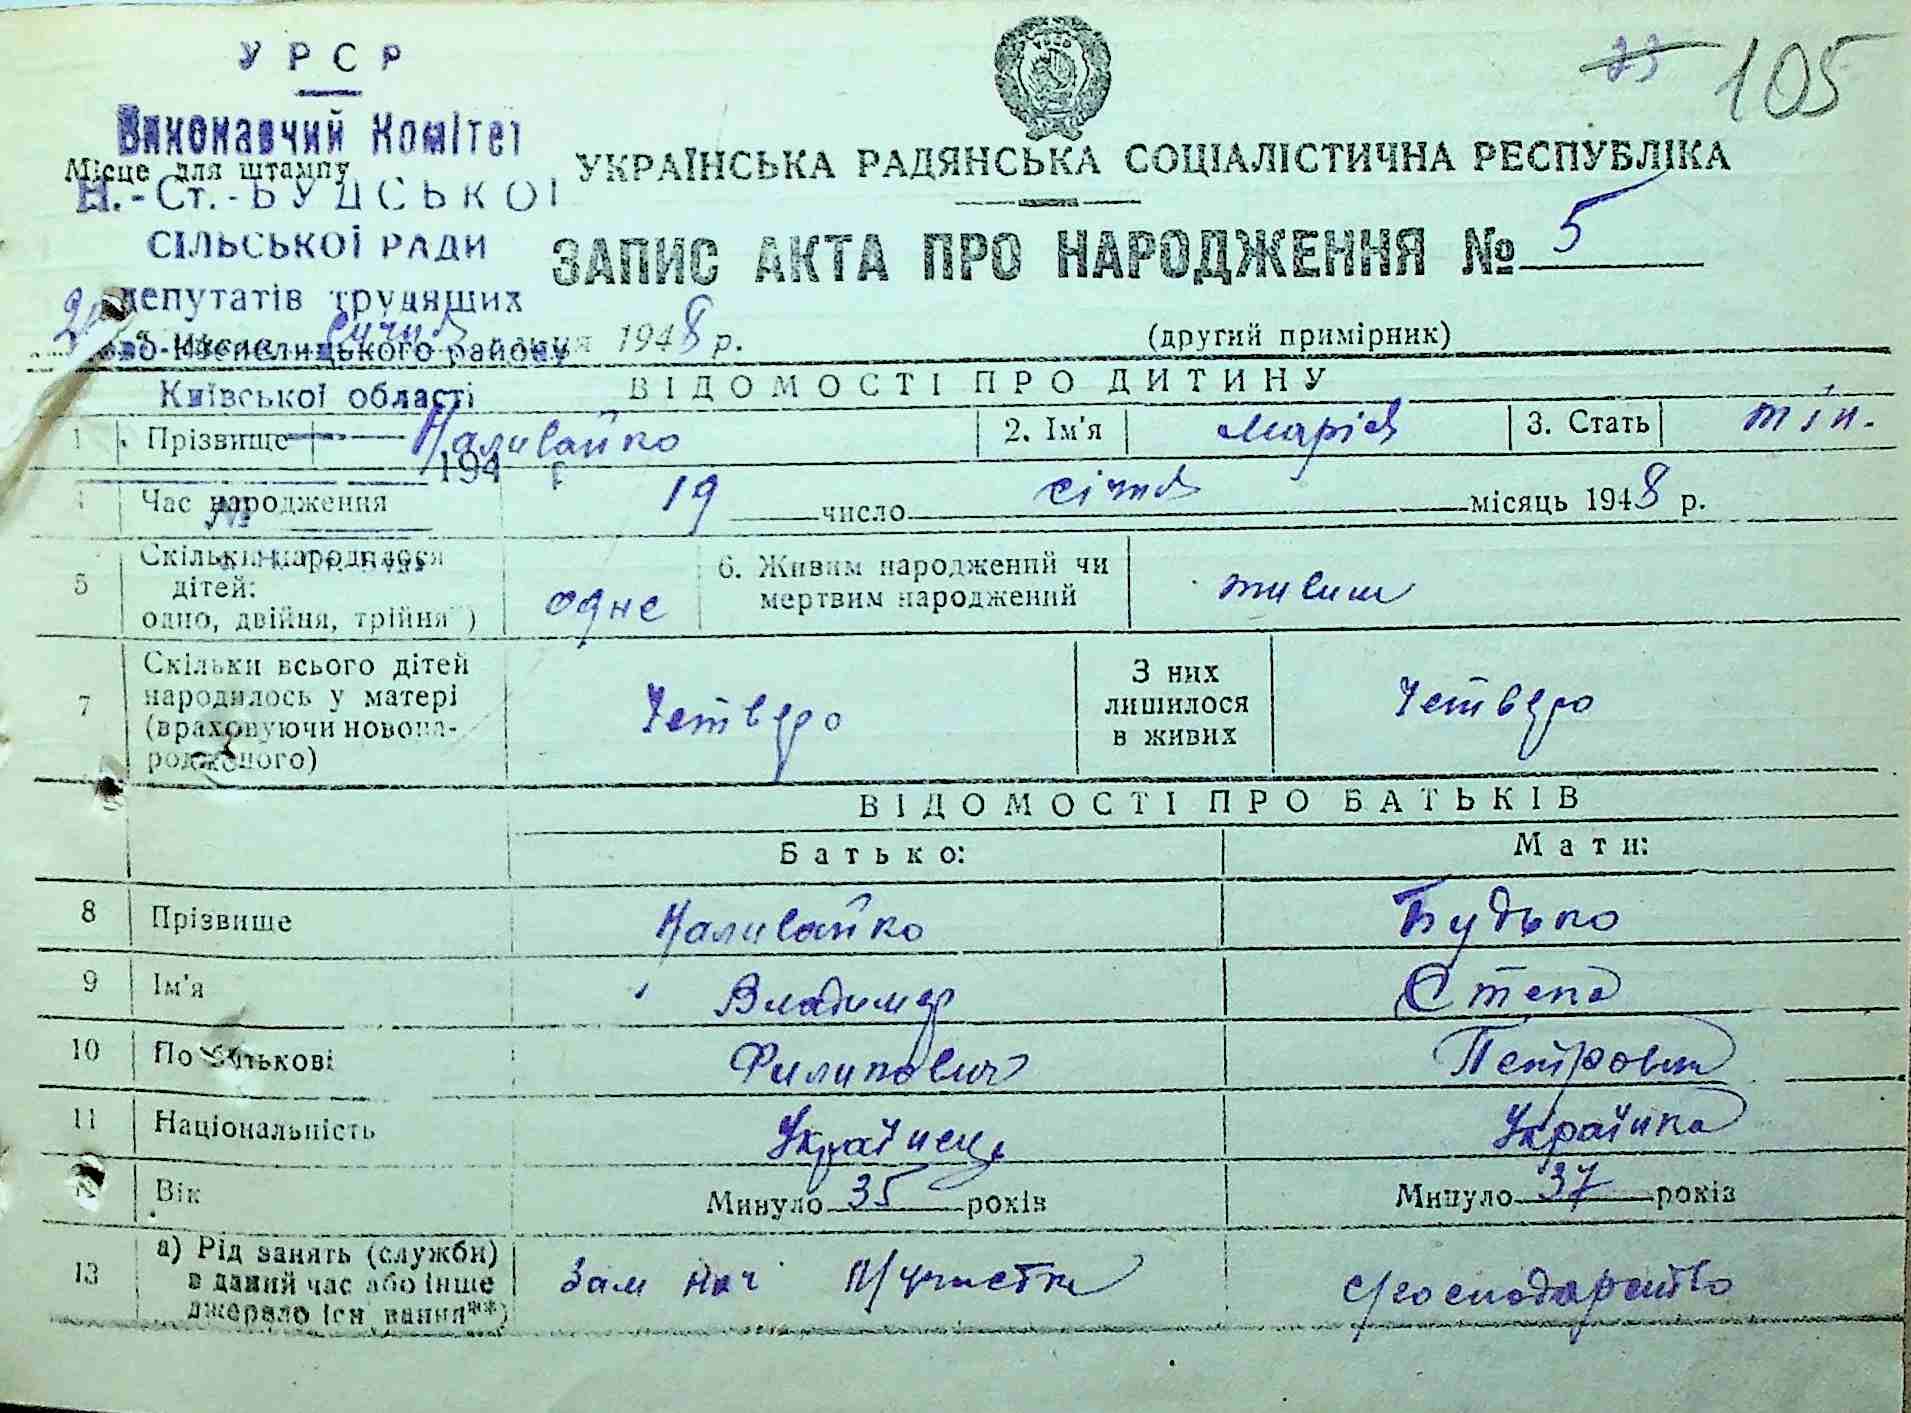 У Р С Р
Виконавчий Комітет
Місце для штампу
Н.-Ст.-БУДСЬКОЇ
СІЛЬСЬКОЇ РАДИ
депутатів трудящих
Київської області
194 г
№
23 105
УКРАЇНСЬКА РАДЯНСЬКА СОЦІАЛІСТИЧНА РЕСПУБЛІКА
ЗАПИС АКТА ПРО НАРОДЖЕННЯ № 5
січня 1948 р.
(другий примірник)
ВІДОМОСТІ ПРО ДИТИНУ
1 Прізвище Наливайко 2. Ім'я Марія 3. Стать жін.
4 Час народження 19 число січня місяць 1948 р.
5 Скільки народилося дітей: одно, двійня, трійня*) одне 6. Живим народжений чи мертвим народжений живим
7 Скільки всього дітей народилось у матері (враховуючи новонародженого) Четверо З них лишилося в живих Четверо
ВІДОМОСТІ ПРО БАТЬКІВ
Батько: Мати:
8 Прізвище Наливайко Будько
9 Ім'я Владимер Степа
10 По батькові Филипович Петровна
11 Національність Українець Українка
Вік Минуло 35 років Минуло 37 років
13 а) Рід занять (служби) в даний час або інше джерело існування**) Зам нач